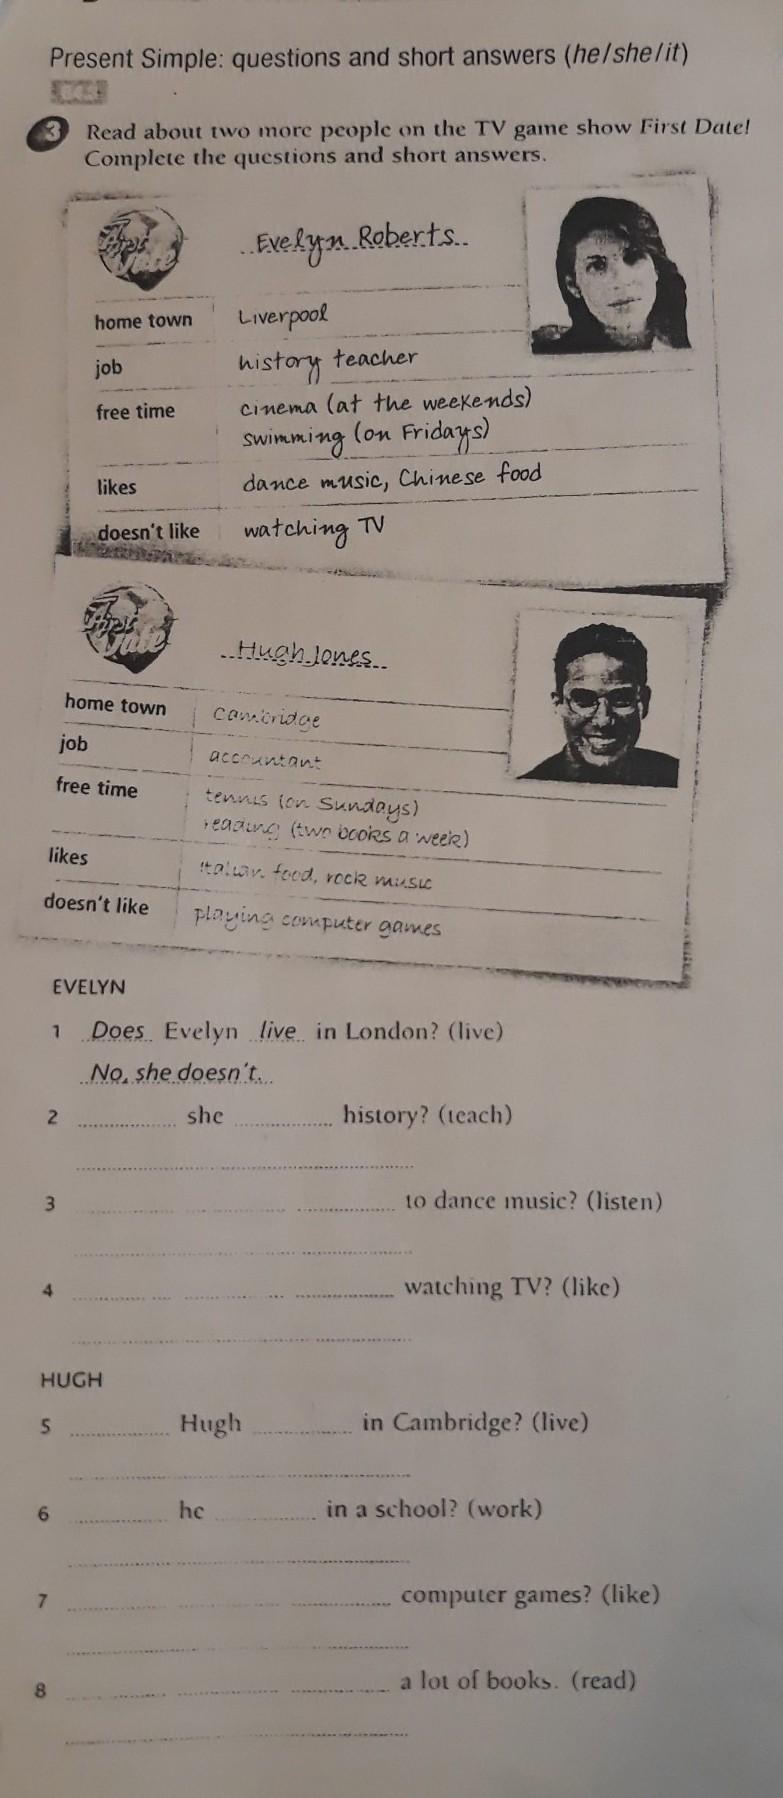 Present Simple: questions and short answers (he/she/it)
3 Read about two more people on the TV game show First Date!
Complete the questions and short answers.
First Date
Evelyn Roberts
home town Liverpool
job history teacher
free time cinema (at the weekends)
swimming (on Fridays)
likes dance music, Chinese food
doesn't like watching TV
First Date
Hugh Jones
home town Cambridge
job accountant
free time tennis (on Sundays)
reading (two books a week)
likes Italian food, rock music
doesn't like playing computer games
EVELYN
1 Does Evelyn live in London? (live)
No, she doesn't.
2 she history? (teach)
3 to dance music? (listen)
4 watching TV? (like)
HUGH
5 Hugh in Cambridge? (live)
6 he in a school? (work)
7 computer games? (like)
8 a lot of books. (read)